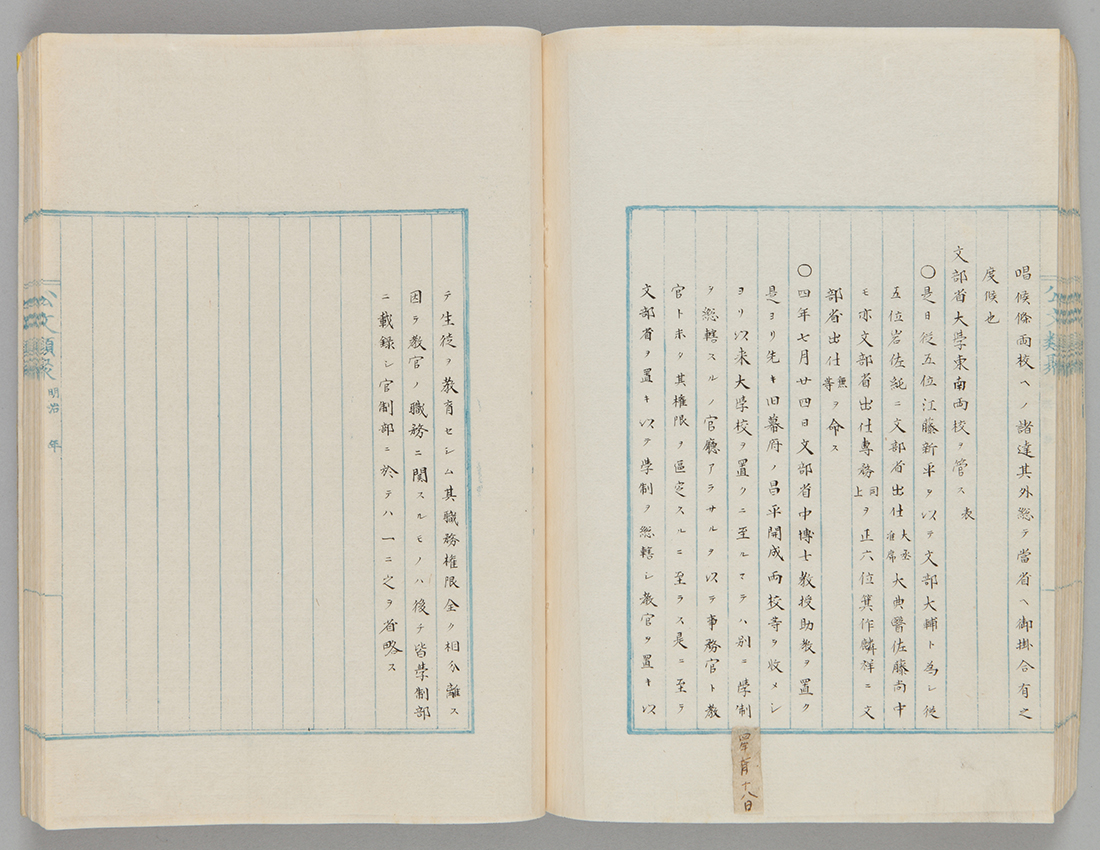 唱候條両校ヘノ諸達其外総テ當省ヘ御掛合有之
度候也
文部省大學東南両校ヲ管ス 表
〇是日従五位江藤新平ヲ以テ文部大輔ト為シ従
五位岩佐純ニ文部省出仕大丞准席大典醫佐藤尚中
モ亦文部省出仕専務上同ヲ正六位箕作麟祥ニ文
部省出仕無等ヲ命ス
〇四年七月廿四日文部省中博士教授助教ヲ置ク
是ヨリ先キ旧幕府ノ昌平開成両校等ヲ收メシ
ヨリ以来大学校ヲ置クニ至ルマテハ別ニ学制
ヲ総轄スルノ官廳アラサルヲ以テ事務官ト教
官ト未タ其権限ヲ區定スルニ至ラス是ニ至テ
文部省ヲ置キ以テ学制ヲ総轄シ教官ヲ置キ以
四年七月十八日
テ生徒ヲ教育セシム其職務権限全ク相分離ス
因テ教官ノ職務ニ関スルモノハ後チ皆学制部
ニ載録シ官制部ニ於テハ一ニ之ヲ省略ス
公文類聚 明治 年
公文類聚